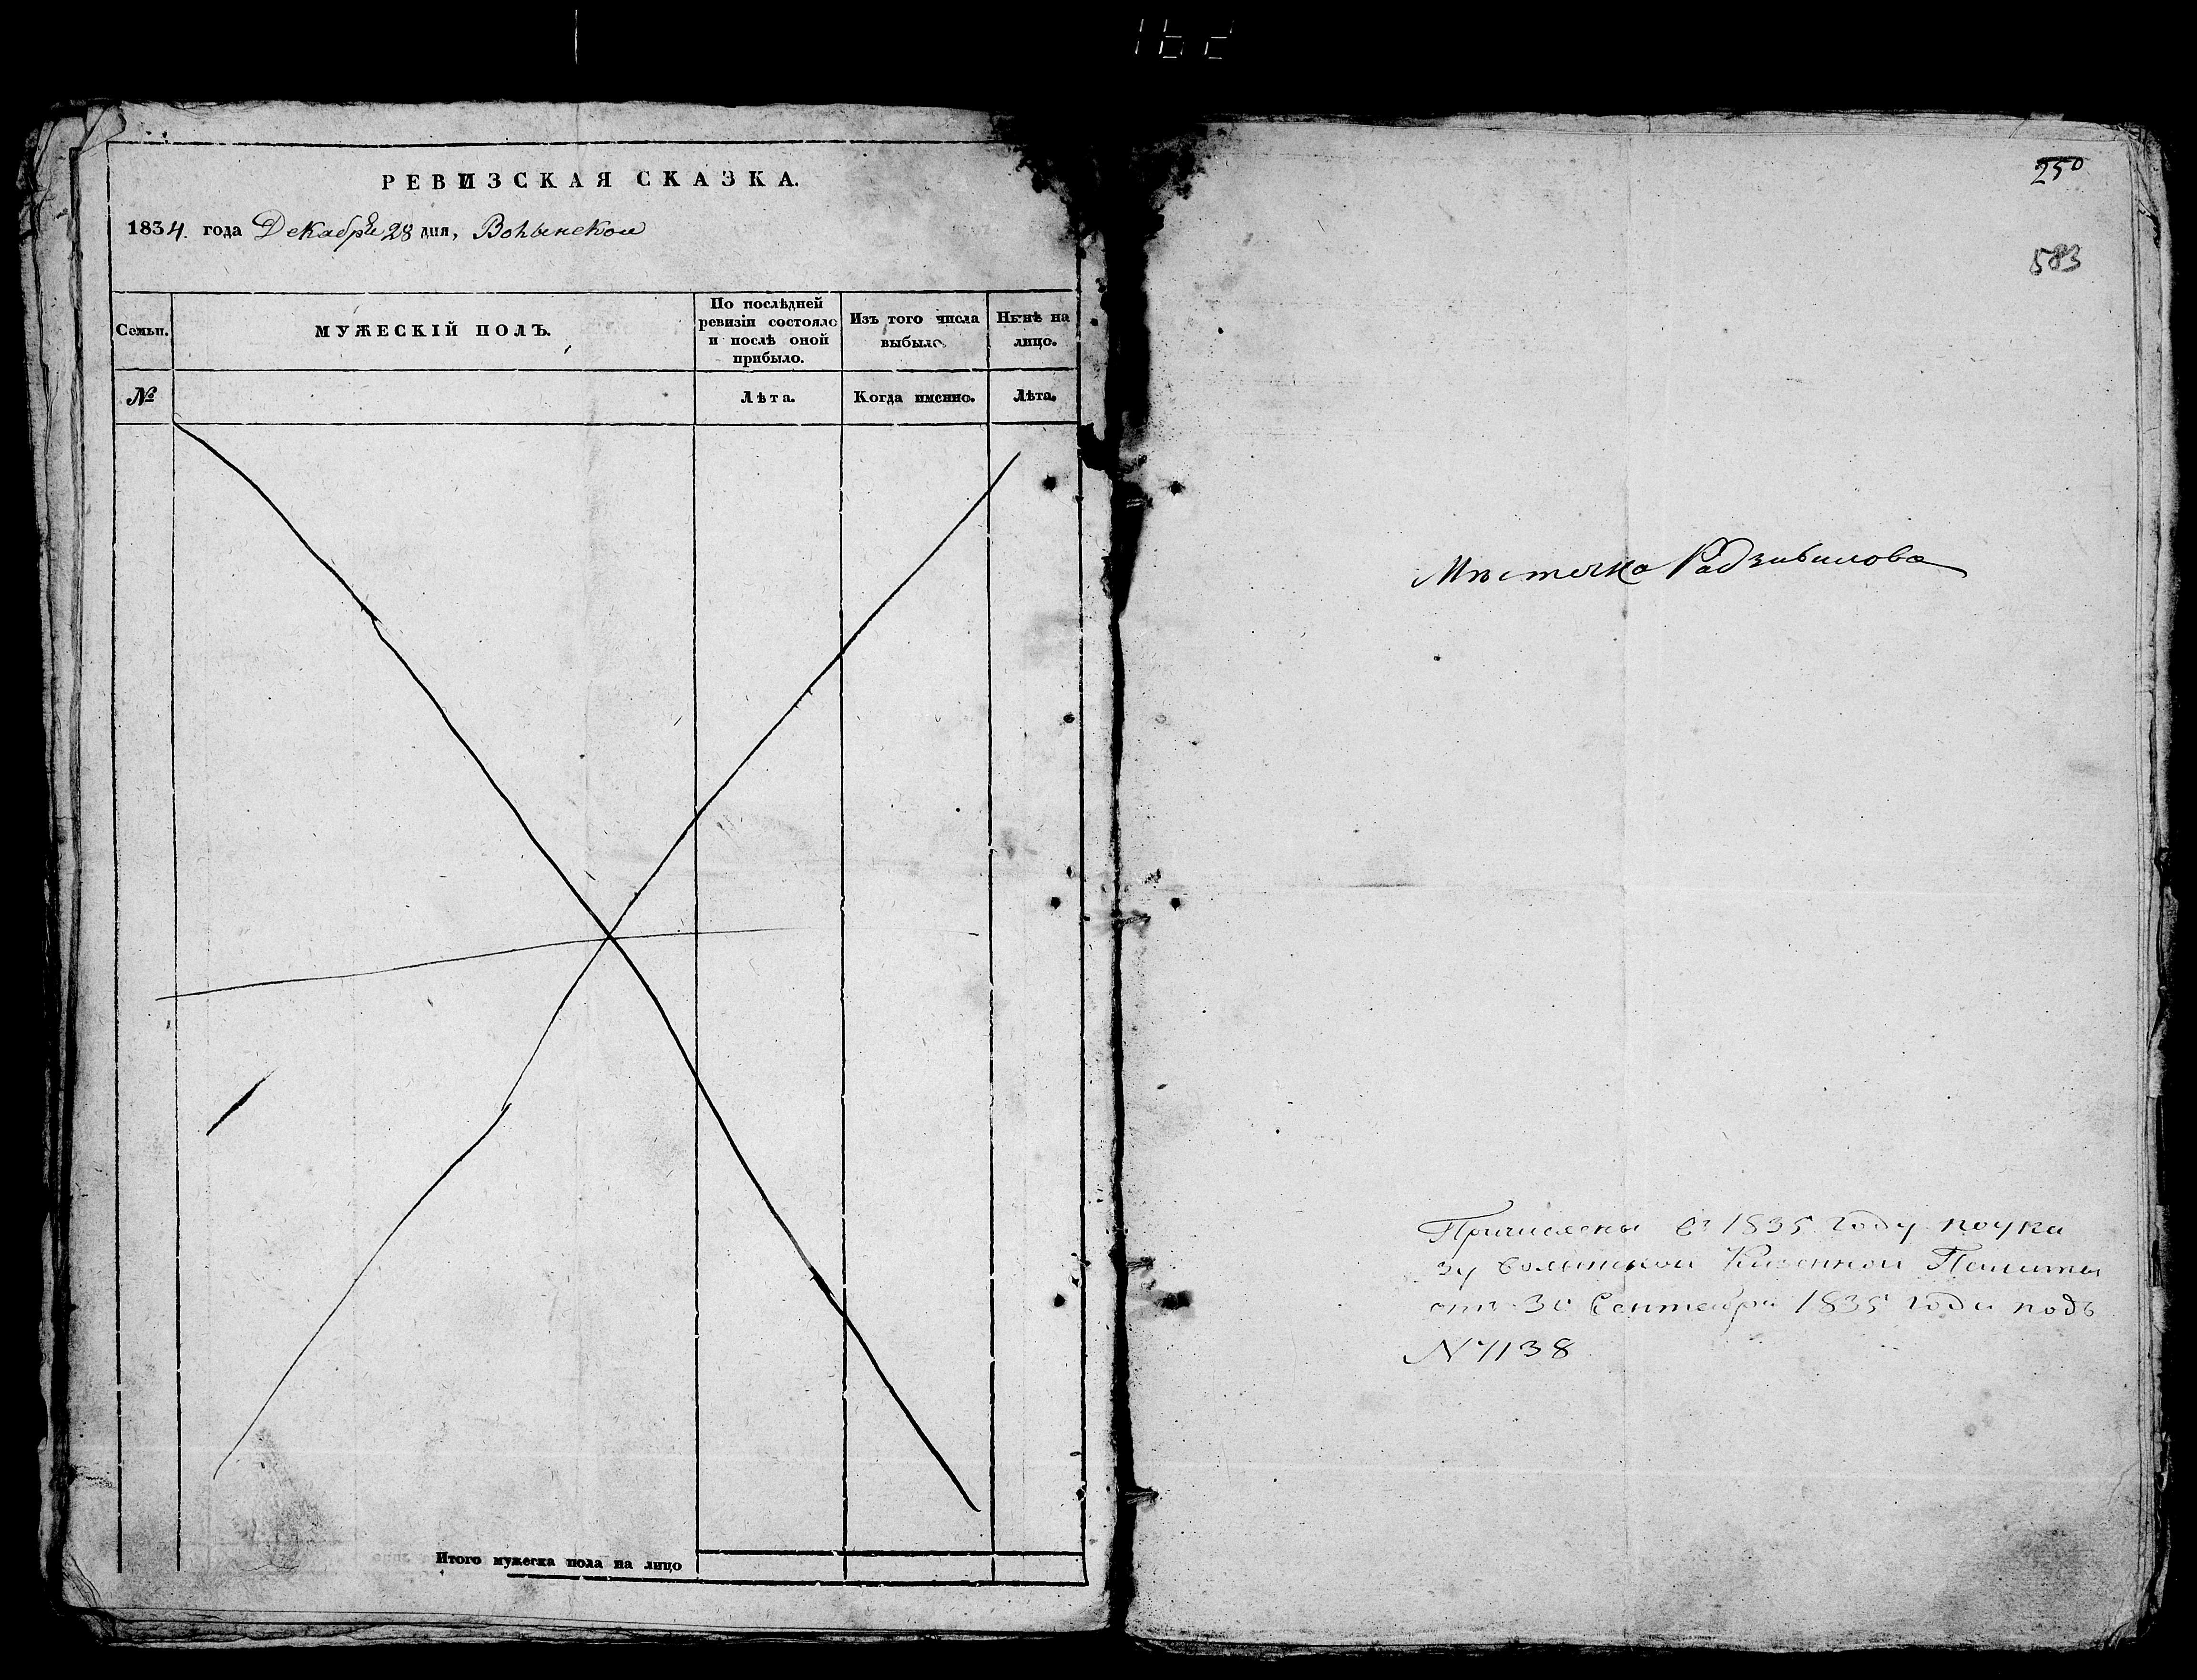 РЕВИЗСКАЯ СКАЗКА.
1834 года Декабря 28 дня, Волынской
Семьи.
МУЖЕСКІЙ ПОЛЪ.
По послѣдней
ревизіи состояло
и послѣ оной
прибыло.
Изъ того числа
выбыло.
Нынѣ на
лицо.
№
Лѣта.
Когда именно.
Лѣта.
Итого мужеска пола на лицо
250
583
Мѣстечка Радзивилова
Причислены въ 1835 году по ука
зу Волынской Казенной Палаты
отъ 30 Сентября 1835 года подъ
N